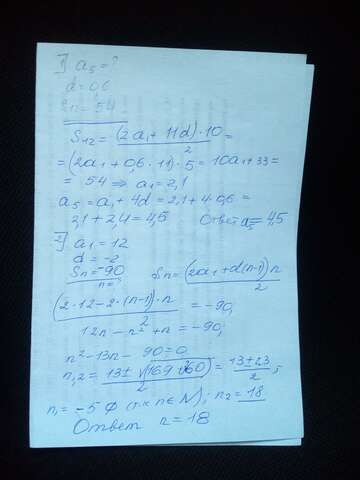 1) a₅ = ?
d = 0,6
Sn = 54
S₁₂ = (2a₁ + 11d) · 10 / 2 =
= (2a₁ + 0,6 · 11) · 5 = 10a₁ + 33 =
= 54 ⇒ a₁ = 2,1
a₅ = a₁ + 4d = 2,1 + 4·0,6 =
2,1 + 2,4 = 4,5 Ответ a₅ = 4,5
2) a₁ = 12
d = -2
Sn = -90 Sn = (2a₁ + d(n-1)) n / 2
n = ?
(2·12 - 2·(n-1))·n / 2 = -90,
12n - n² + n = -90,
n² - 13n - 90 = 0
n₁,₂ = 13 ± √(169 + 360) / 2 = 13 ± 23 / 2,
n₁ = -5 ∅ (т.к n ∈ N); n₂ = 18
Ответ n = 18